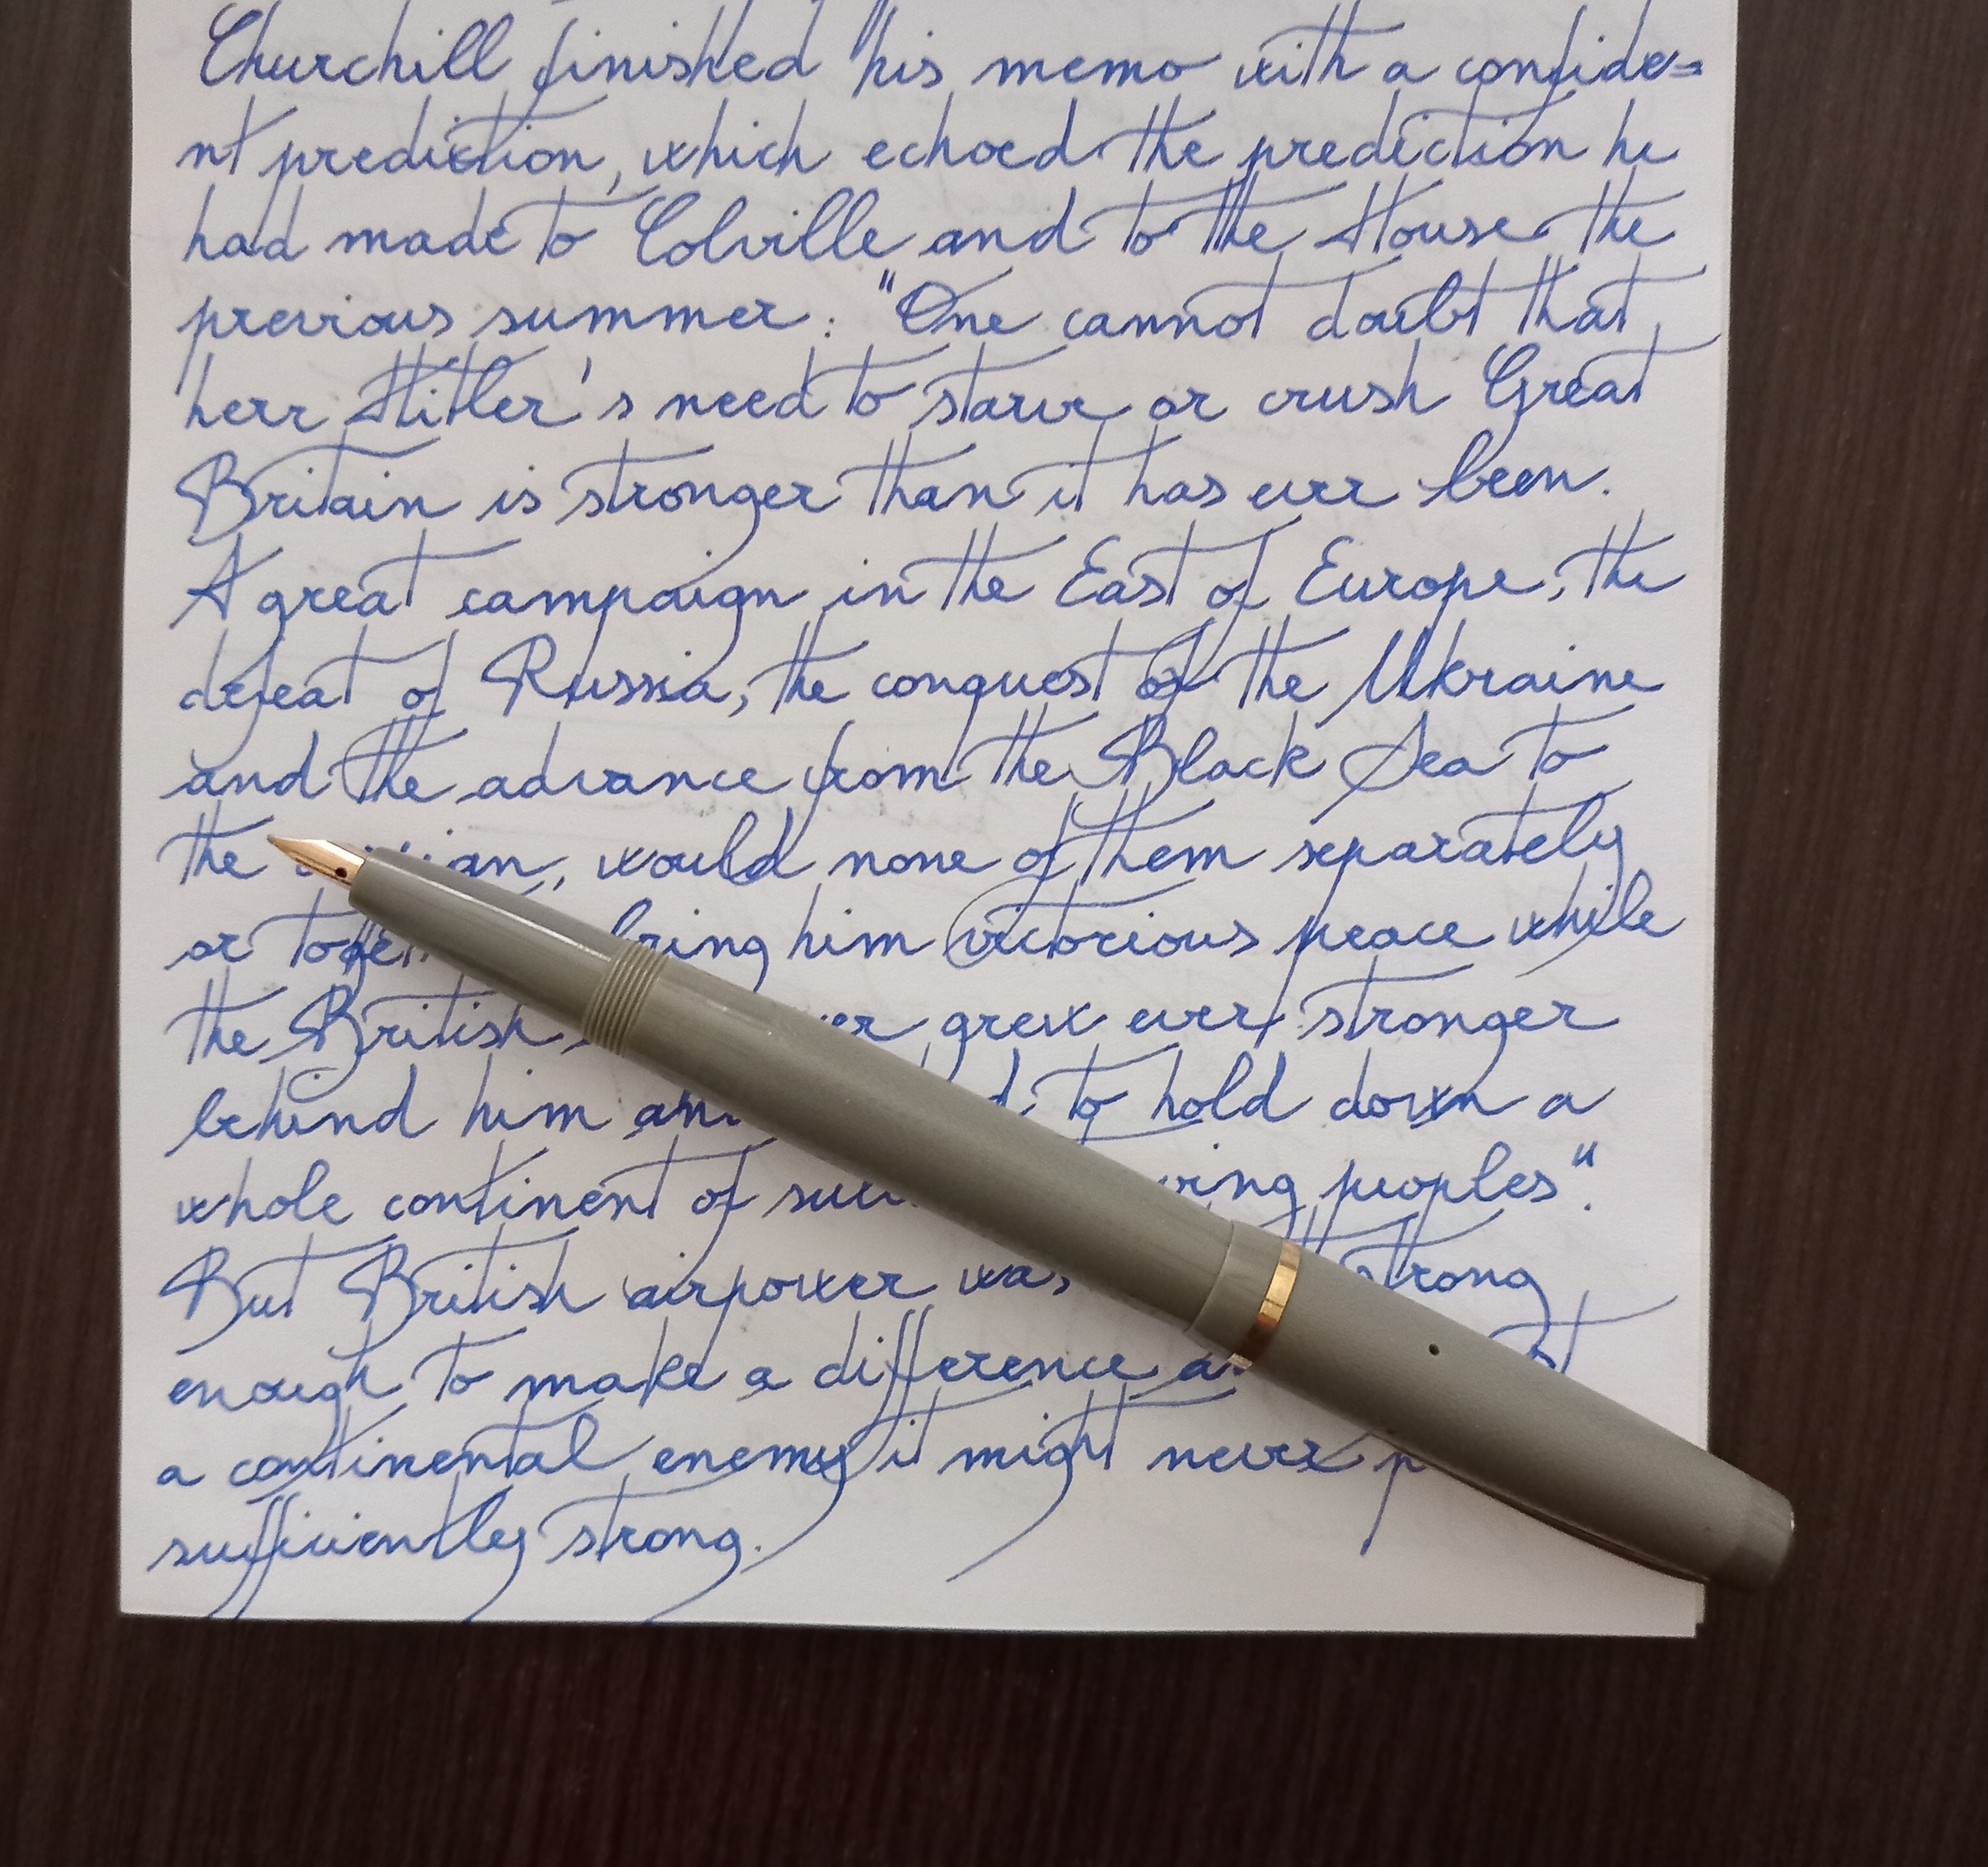 Churchill finished his memo with a confide=
nt prediction, which echoed the prediction he
had made to Colville and to the House the
previous summer: "One cannot doubt that
herr Hitler's need to starve or crush Great
Britain is stronger than it has ever been.
A great campaign in the East of Europe, the
defeat of Russia, the conquest of the Ukraine
and the advance from the Black Sea to
the would none of them separately
or bring him victorious peace while
the British grew ever stronger
behind him to hold down a
whole continent of peoples".
But British airpower was strong
enough to make a difference
a continental enemy it might never
sufficiently strong.